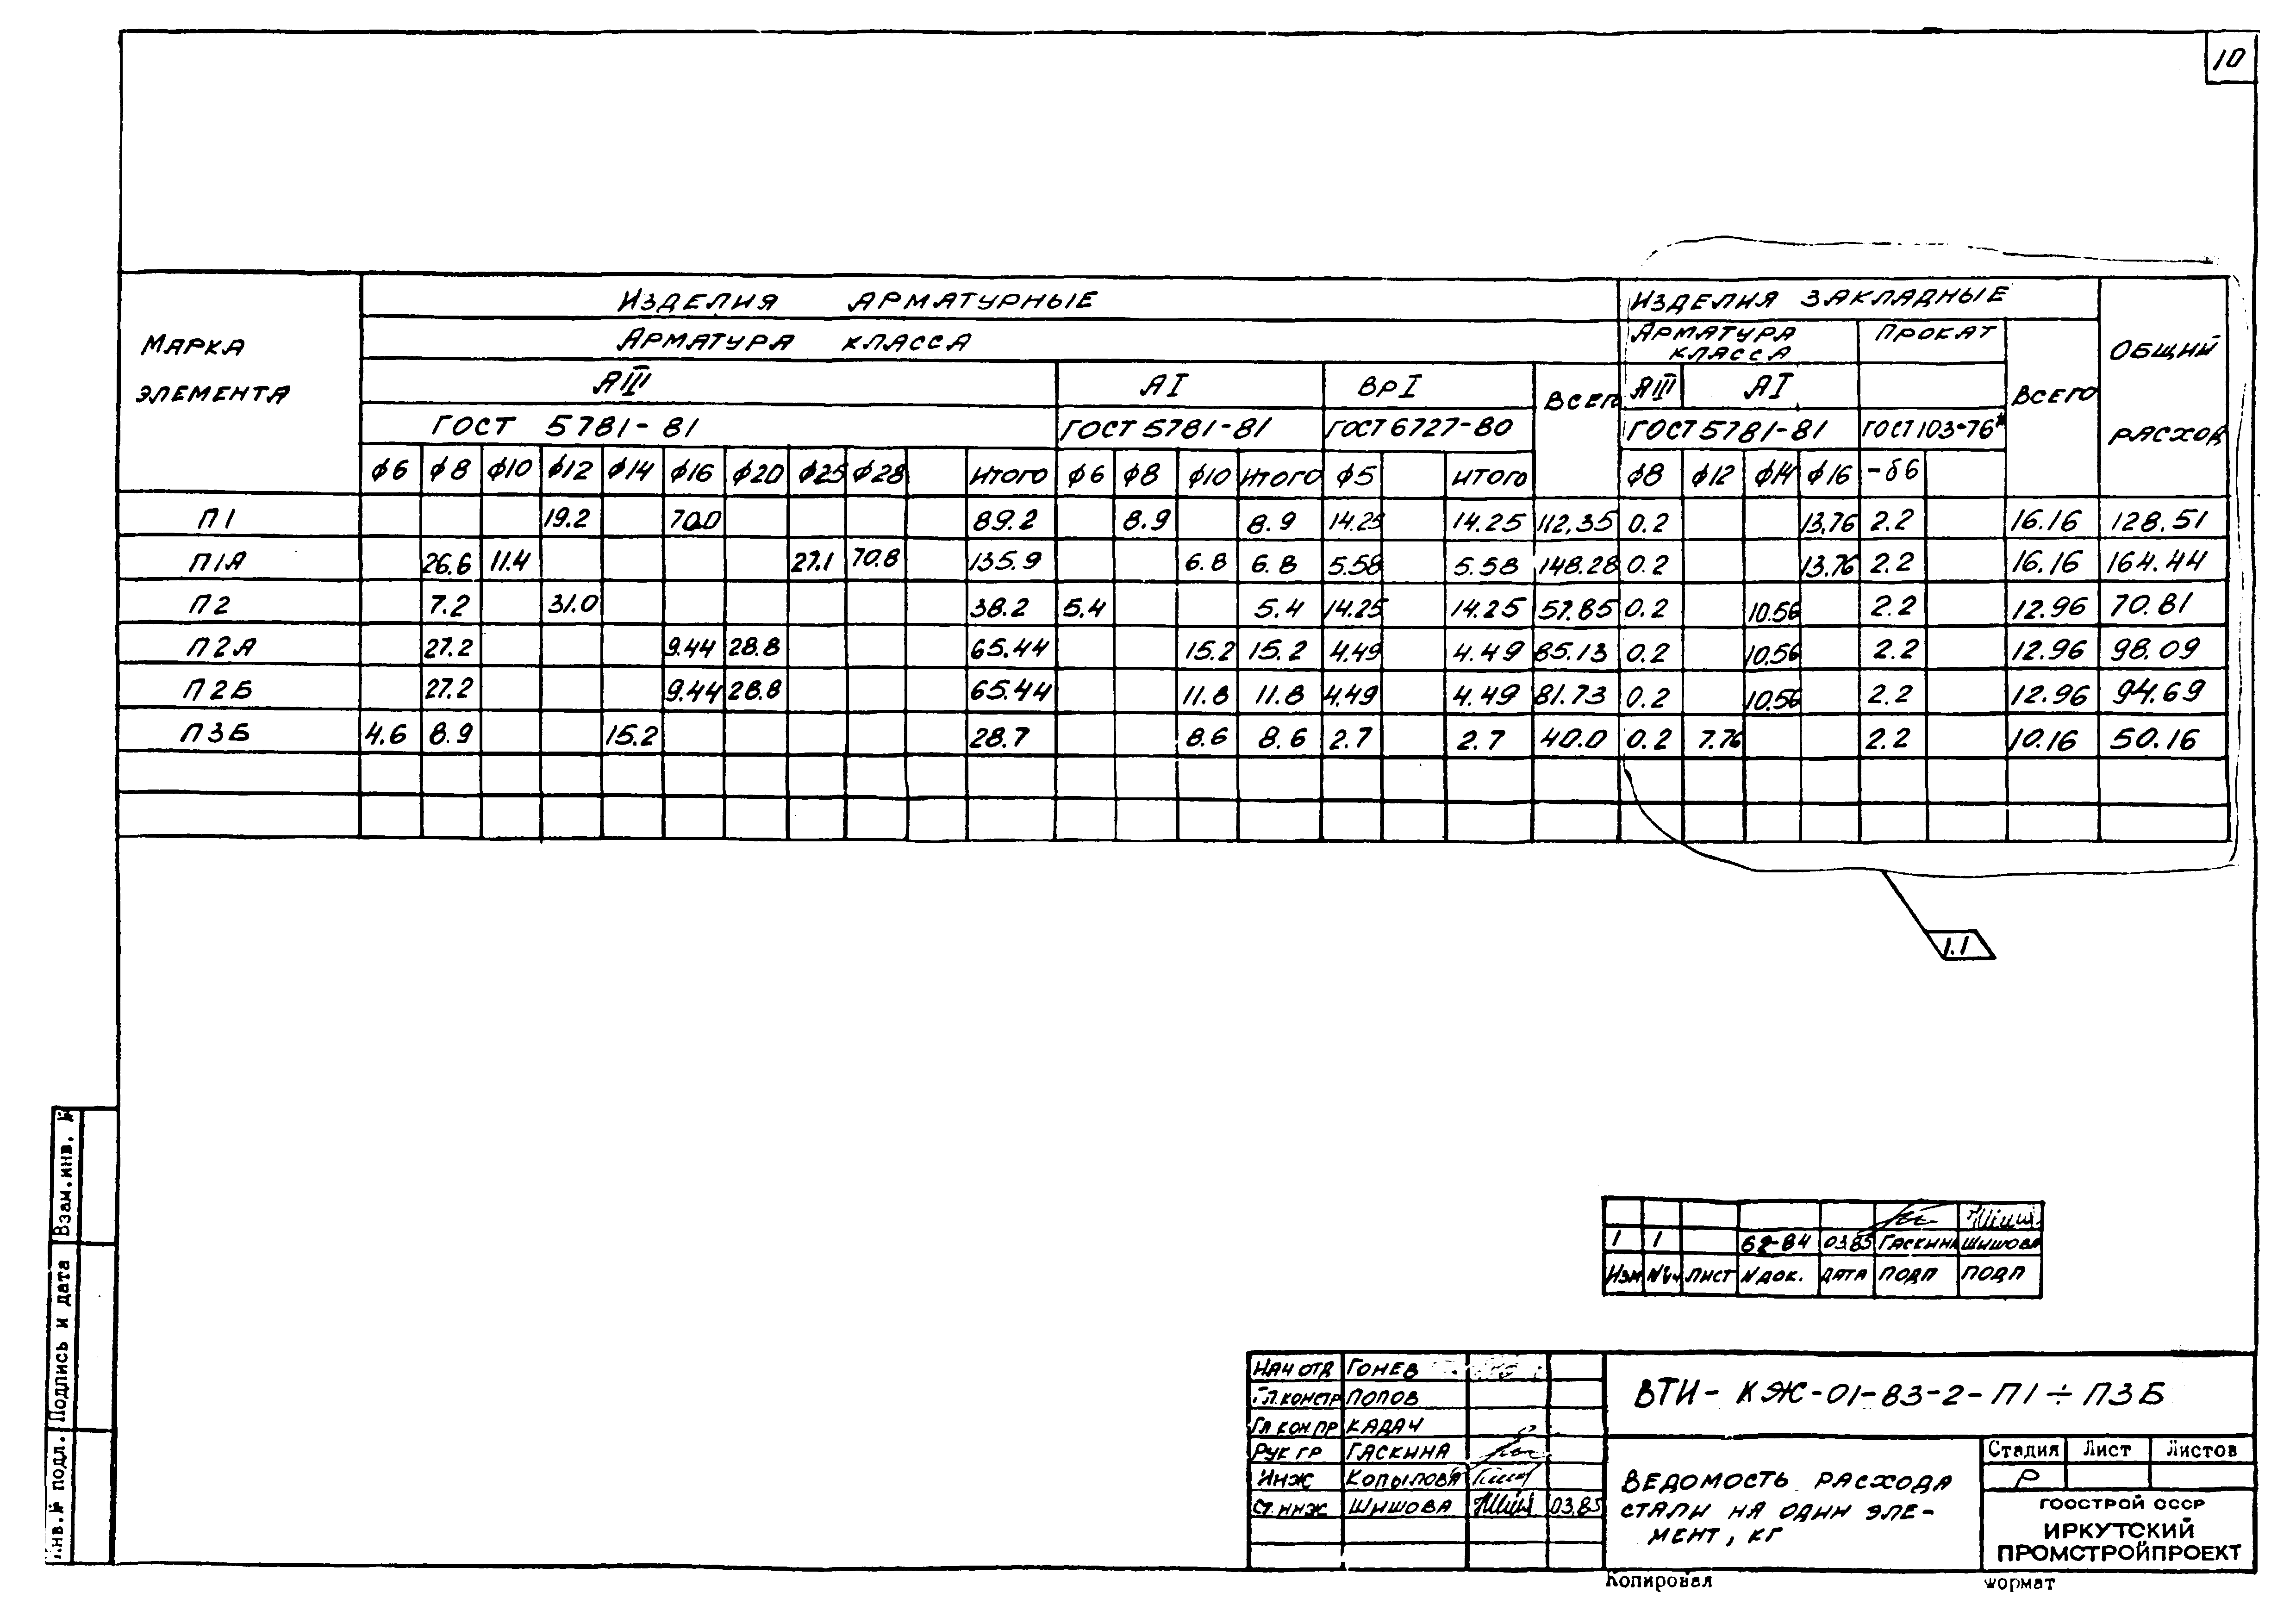 10
МАРКА ЭЛЕМЕНТА
ИЗДЕЛИЯ АРМАТУРНЫЕ
ИЗДЕЛИЯ ЗАКЛАДНЫЕ
ОБЩИЙ РАСХОД
АРМАТУРА КЛАССА
АРМАТУРА КЛАССА
ПРОКАТ
ВСЕГО
АIII
АI
ВрI
ВСЕГО
АIII
АI
ГОСТ 5781-81
ГОСТ 5781-81
ГОСТ 6727-80
ГОСТ 5781-81
ГОСТ 103-76*
ф6 ф8 ф10 ф12 ф14 ф16 ф20 ф25 ф28 ИТОГО ф6 ф8 ф10 ИТОГО ф5 ИТОГО ф8 ф12 ф14 ф16 -δ6
П1 19.2 70.0 89.2 8.9 8.9 14.25 14.25 112.35 0.2 13.76 2.2 16.16 128.51
П1А 26.6 11.4 27.1 70.8 135.9 6.8 6.8 5.58 5.58 148.28 0.2 13.76 2.2 16.16 164.44
П2 7.2 31.0 38.2 5.4 5.4 14.25 14.25 57.85 0.2 10.56 2.2 12.96 70.81
П2А 27.2 9.44 28.8 65.44 15.2 15.2 4.49 4.49 85.13 0.2 10.56 2.2 12.96 98.09
П2Б 27.2 9.44 28.8 65.44 11.8 11.8 4.49 4.49 81.73 0.2 10.56 2.2 12.96 94.69
П3Б 4.6 8.9 15.2 28.7 8.6 8.6 2.7 2.7 40.0 0.2 7.76 2.2 10.16 50.16
1.1
1 1 62-84 03.85 ГАСКИНА ШИШОВА
ИЗМ №уч ЛИСТ N ДОК. ДАТА ПОДП ПОДП
НАЧ ОТД ГОНЕВ
ГЛ.КОНСТР ПОПОВ
ГЛ КОН ПР КАДАЧ
РУК ГР ГАСКИНА
ИНЖ КОПЫЛОВА
СТ.ИНЖ ШИШОВА 03.85
ВТИ-КЖ-01-83-2-П1÷П3Б
ВЕДОМОСТЬ РАСХОДА
СТАЛИ НА ОДИН ЭЛЕ-
МЕНТ, КГ
Стадия Лист Листов
Р
ГОССТРОЙ СССР
ИРКУТСКИЙ
ПРОМСТРОЙПРОЕКТ
Копировал
Формат
Взам.инв. №
Подпись и дата
Инв.№ подл.